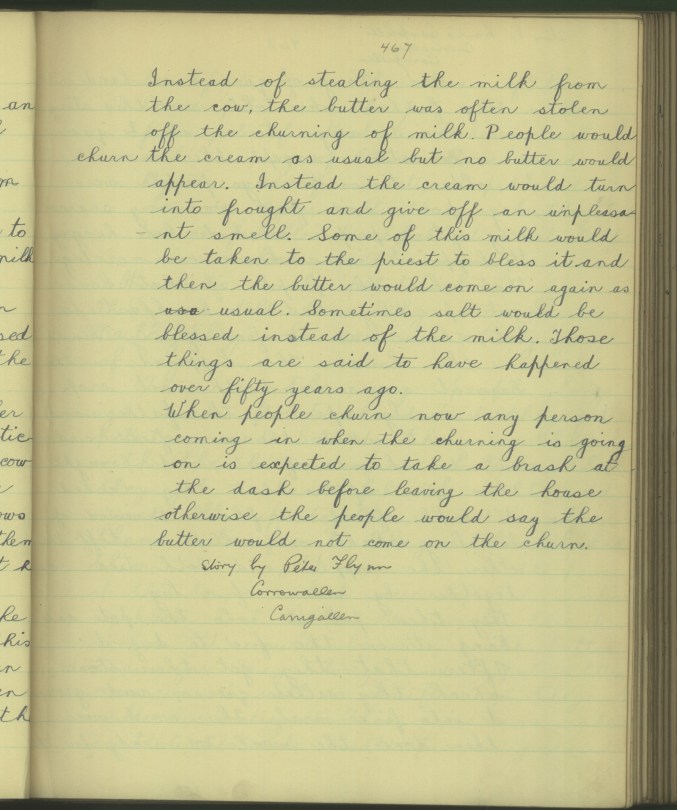 467
Instead of stealing the milk from
the cow, the butter was often stolen
off the churning of milk. People would
churn the cream as usual but no butter would
appear. Instead the cream would turn
into frought and give off an unpleasa-
- nt smell. Some of this milk would
be taken to the priest to bless it and
then the butter would come on again as
usa usual. Sometimes salt would be
blessed instead of the milk. Those
things are said to have happened
over fifty years ago.
When people churn now any person
coming in when the churning is going
on is expected to take a brash at
the dash before leaving the house
otherwise the people would say the
butter would not come on the churn.
Story by Peter Flynn
Corrowallen
Carrigallen
an
m
to
milk
n
sed
the
er
tic
cow
ows
them
t a
he
his
n
en
th